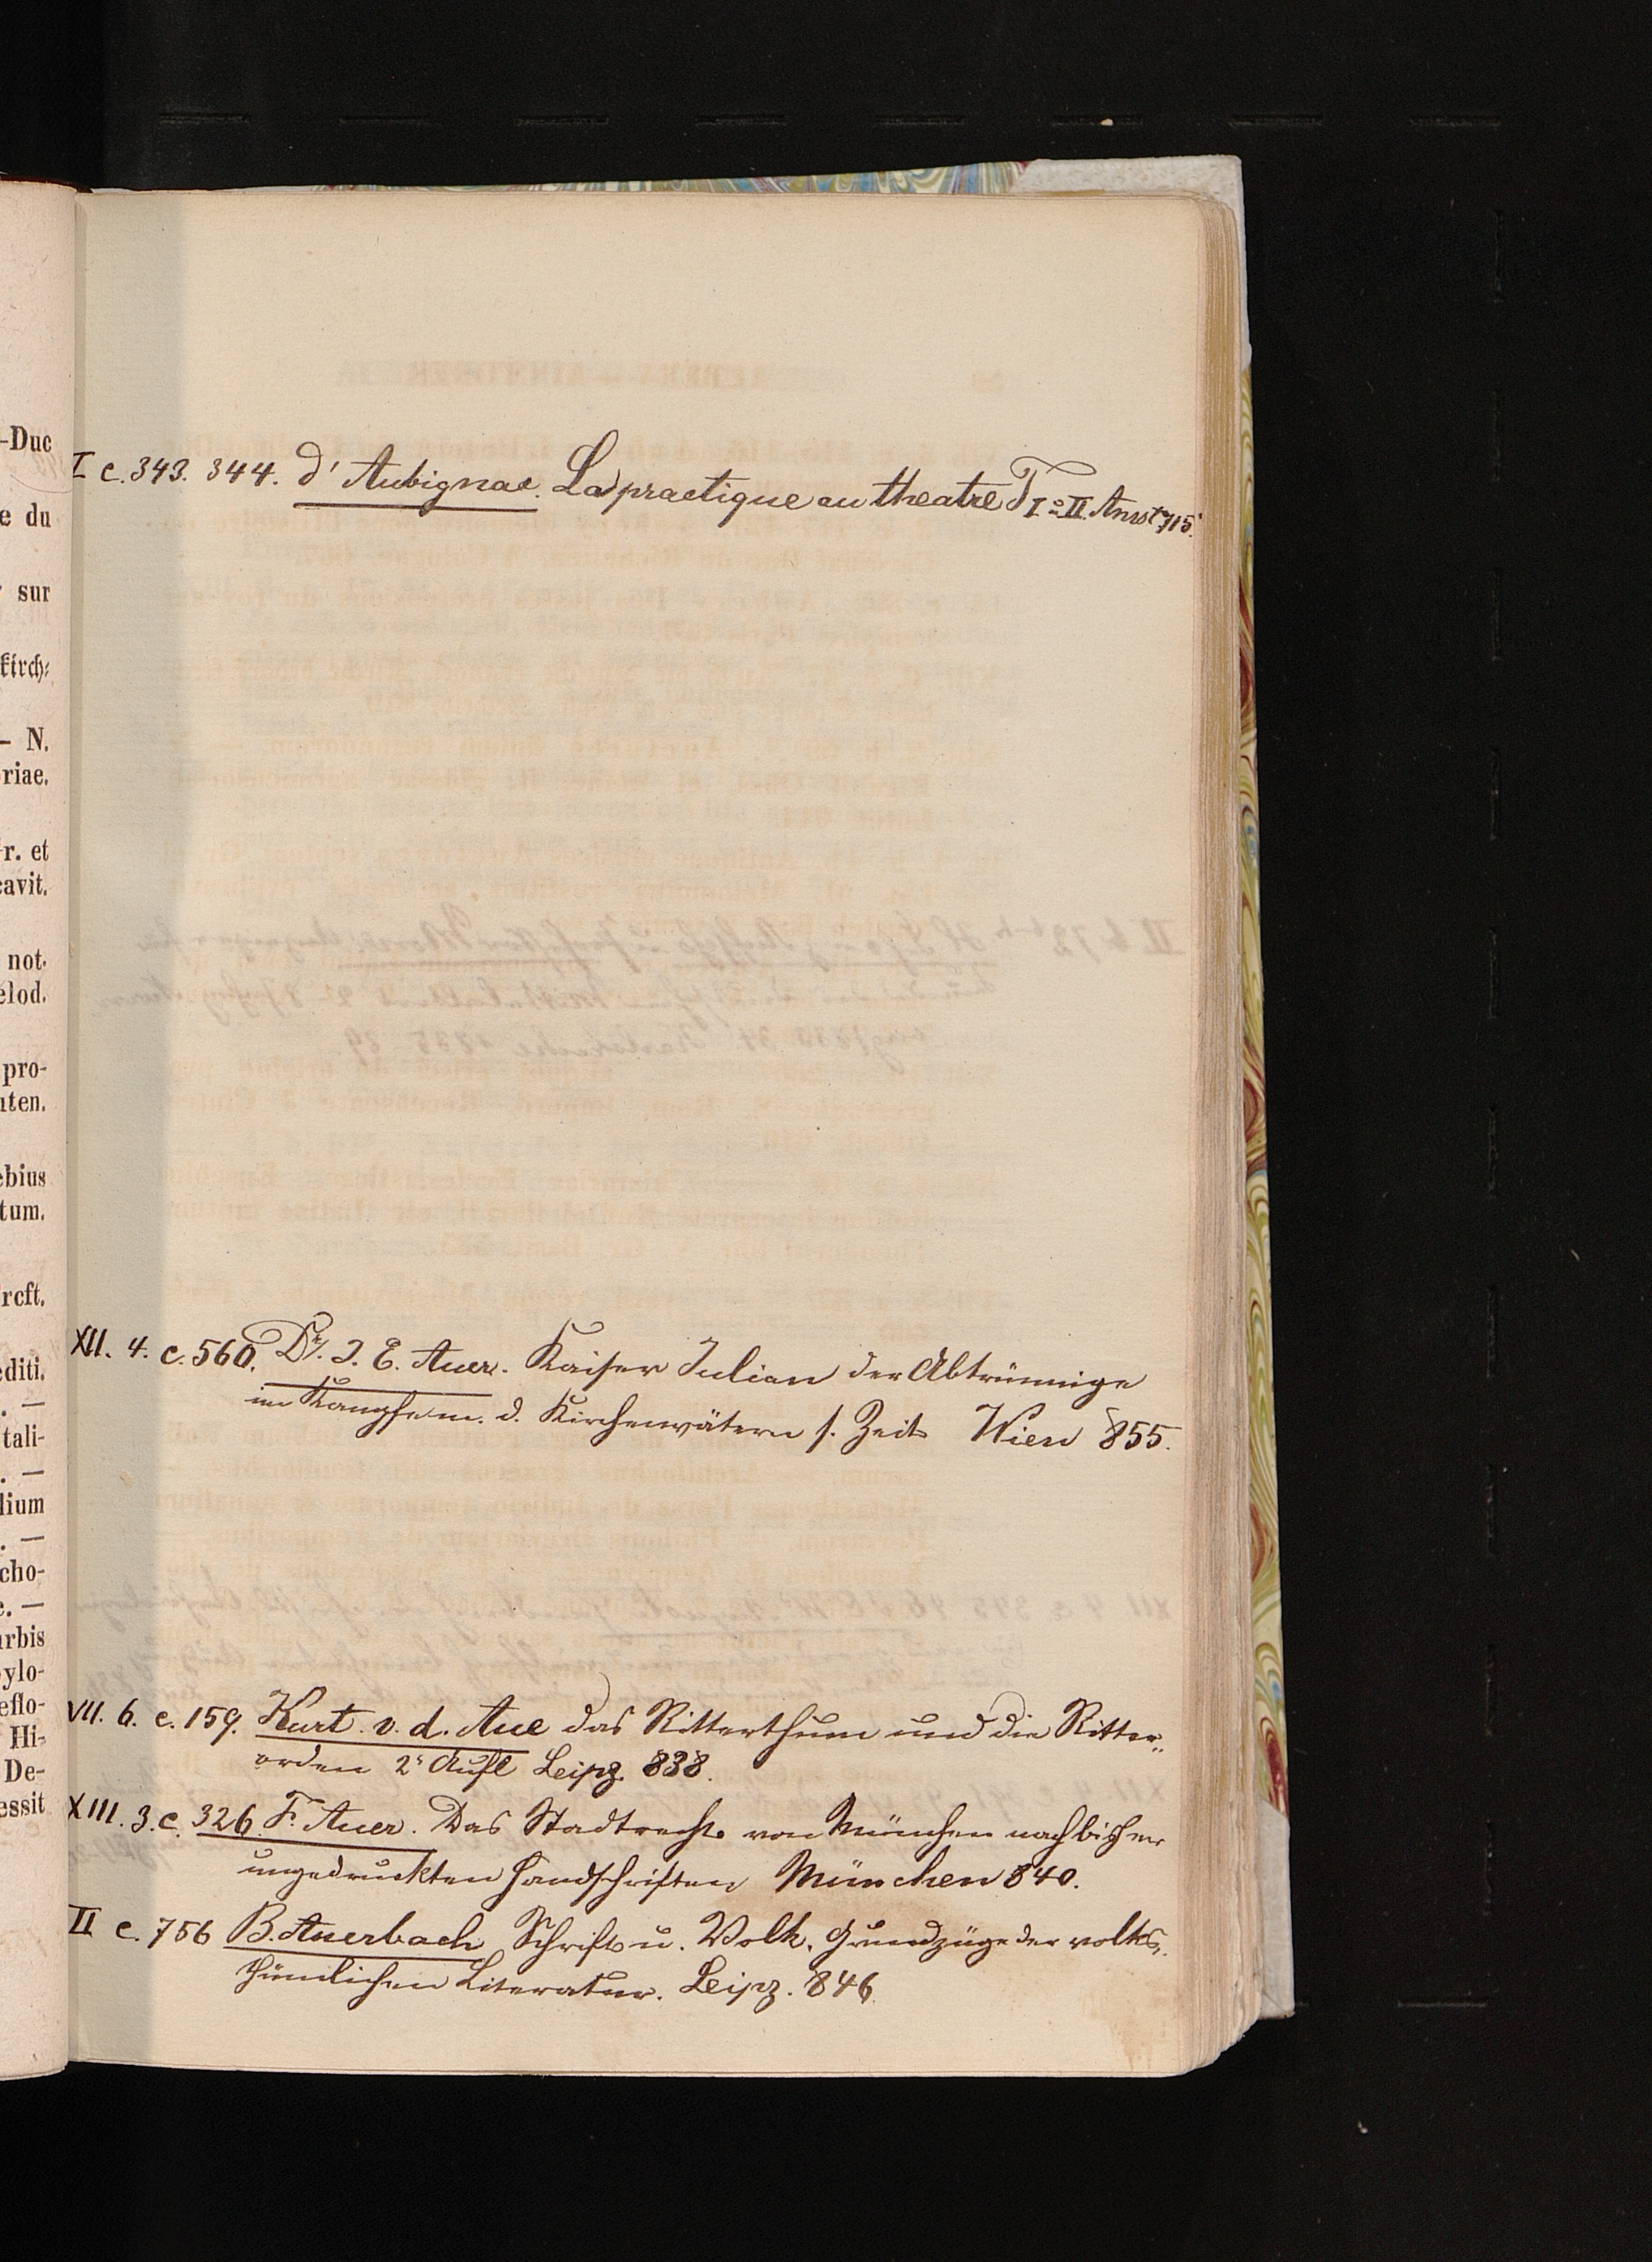 -Duc
e du
sur
kirch-
- N.
riae.
r. et
cavit.
not.
elod.
pro-
uten.
ebius
tum.
editi.
. —
tali-
. —
lium
. —
cho-
e. —
urbis
ylo-
eflo-
Hi-
De-
essit
I c. 343. 344. d'Aubignac. La practique au theatre T I–II. Amst. 715.
XII. 4. c. 560. Dr. J. E. Auer. Kaiser Julian der Abtrünnige
im Kampfe m. d. Kirchenvätern s. Zeit Wien 855.
VII. 6. c. 159. Kurt v. d. Aue das Ritterthum und die Ritter„
orden 2e Aufl Leipz. 838.
XIII. 3. c. 326. F. Auer. Das Stadtrecht von München nach bisher
ungedruckten Handschriften München 840.
II c. 756 B. Auerbach Schrift u. Volk. Grundzüge der volks„
thümlichen Literatur. Leipz. 846.